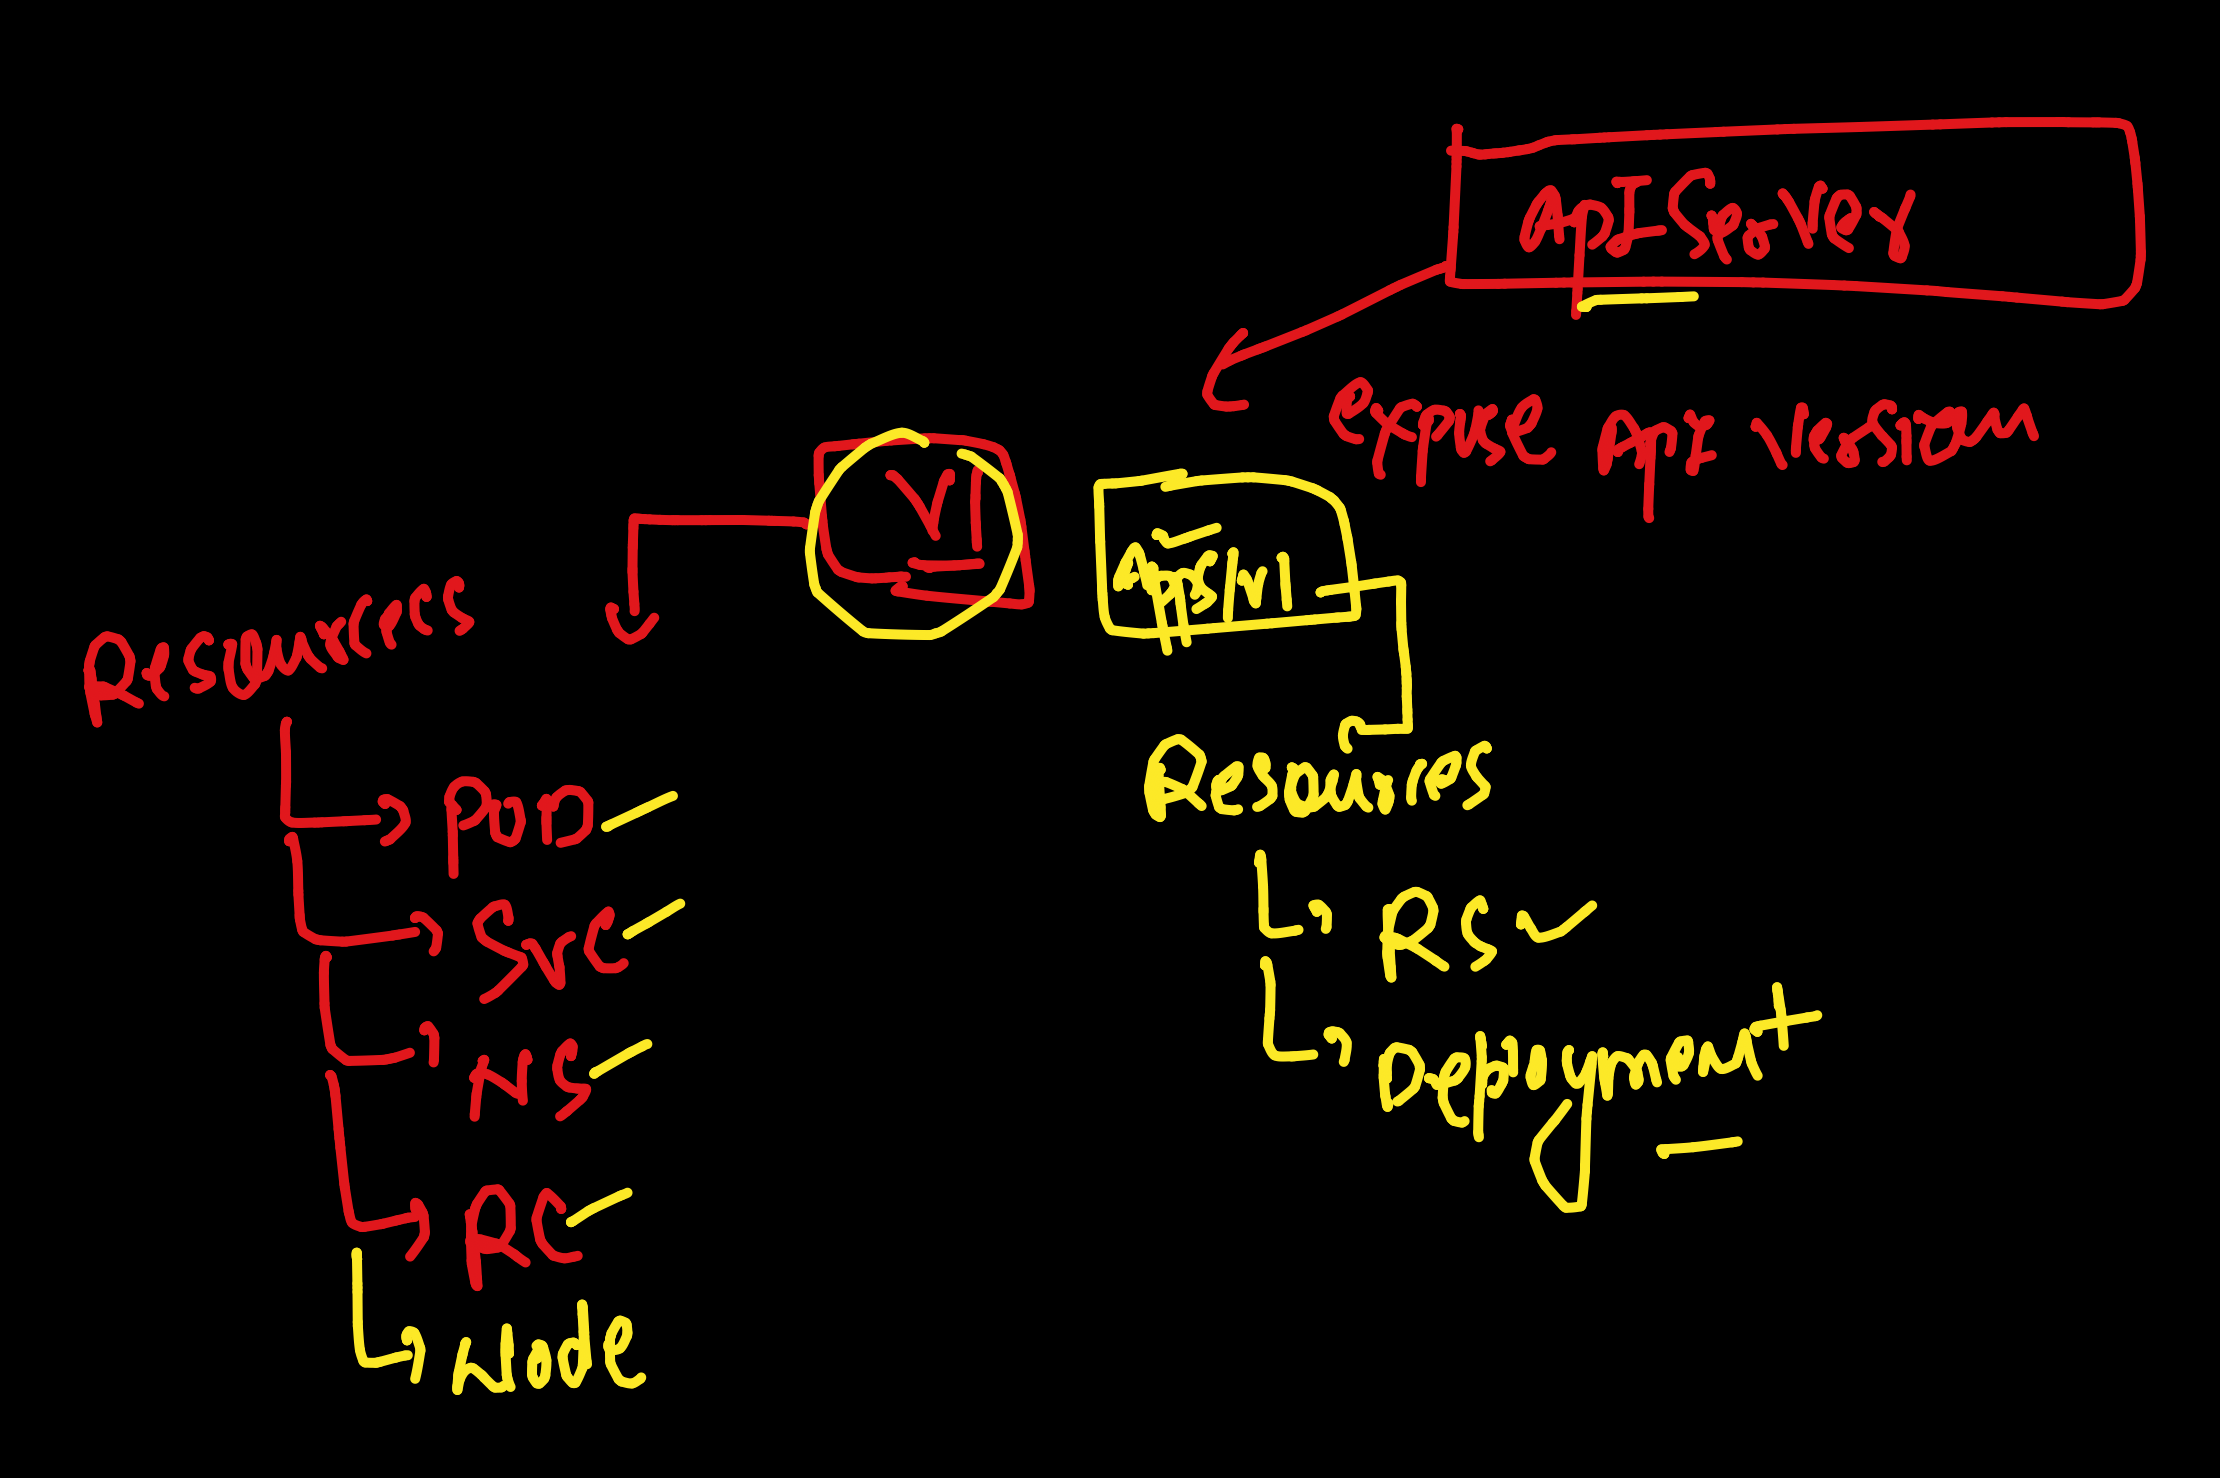 ApI Server
expose ApI version
V1
Apps/v1
Resources
POD
SVC
NS
RC
Node
Resources
RS
Deployment